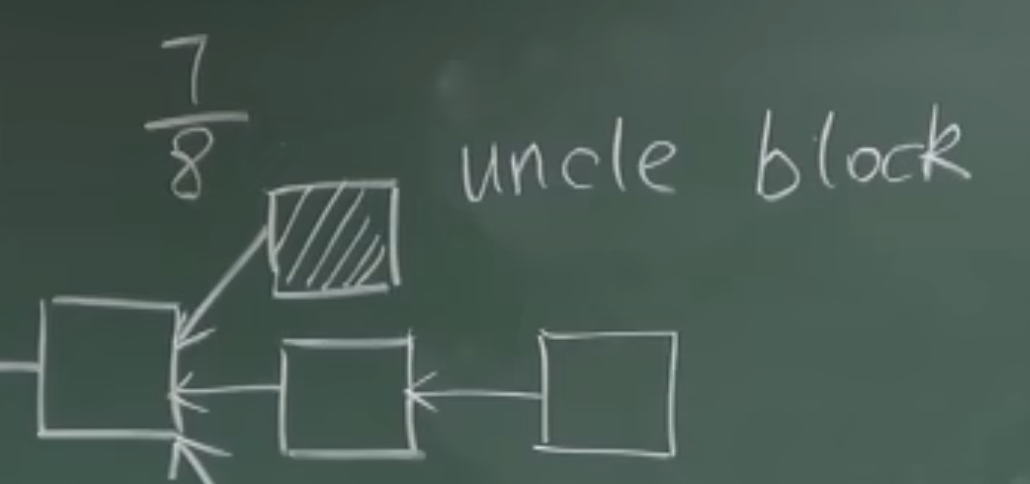 7
8
uncle block